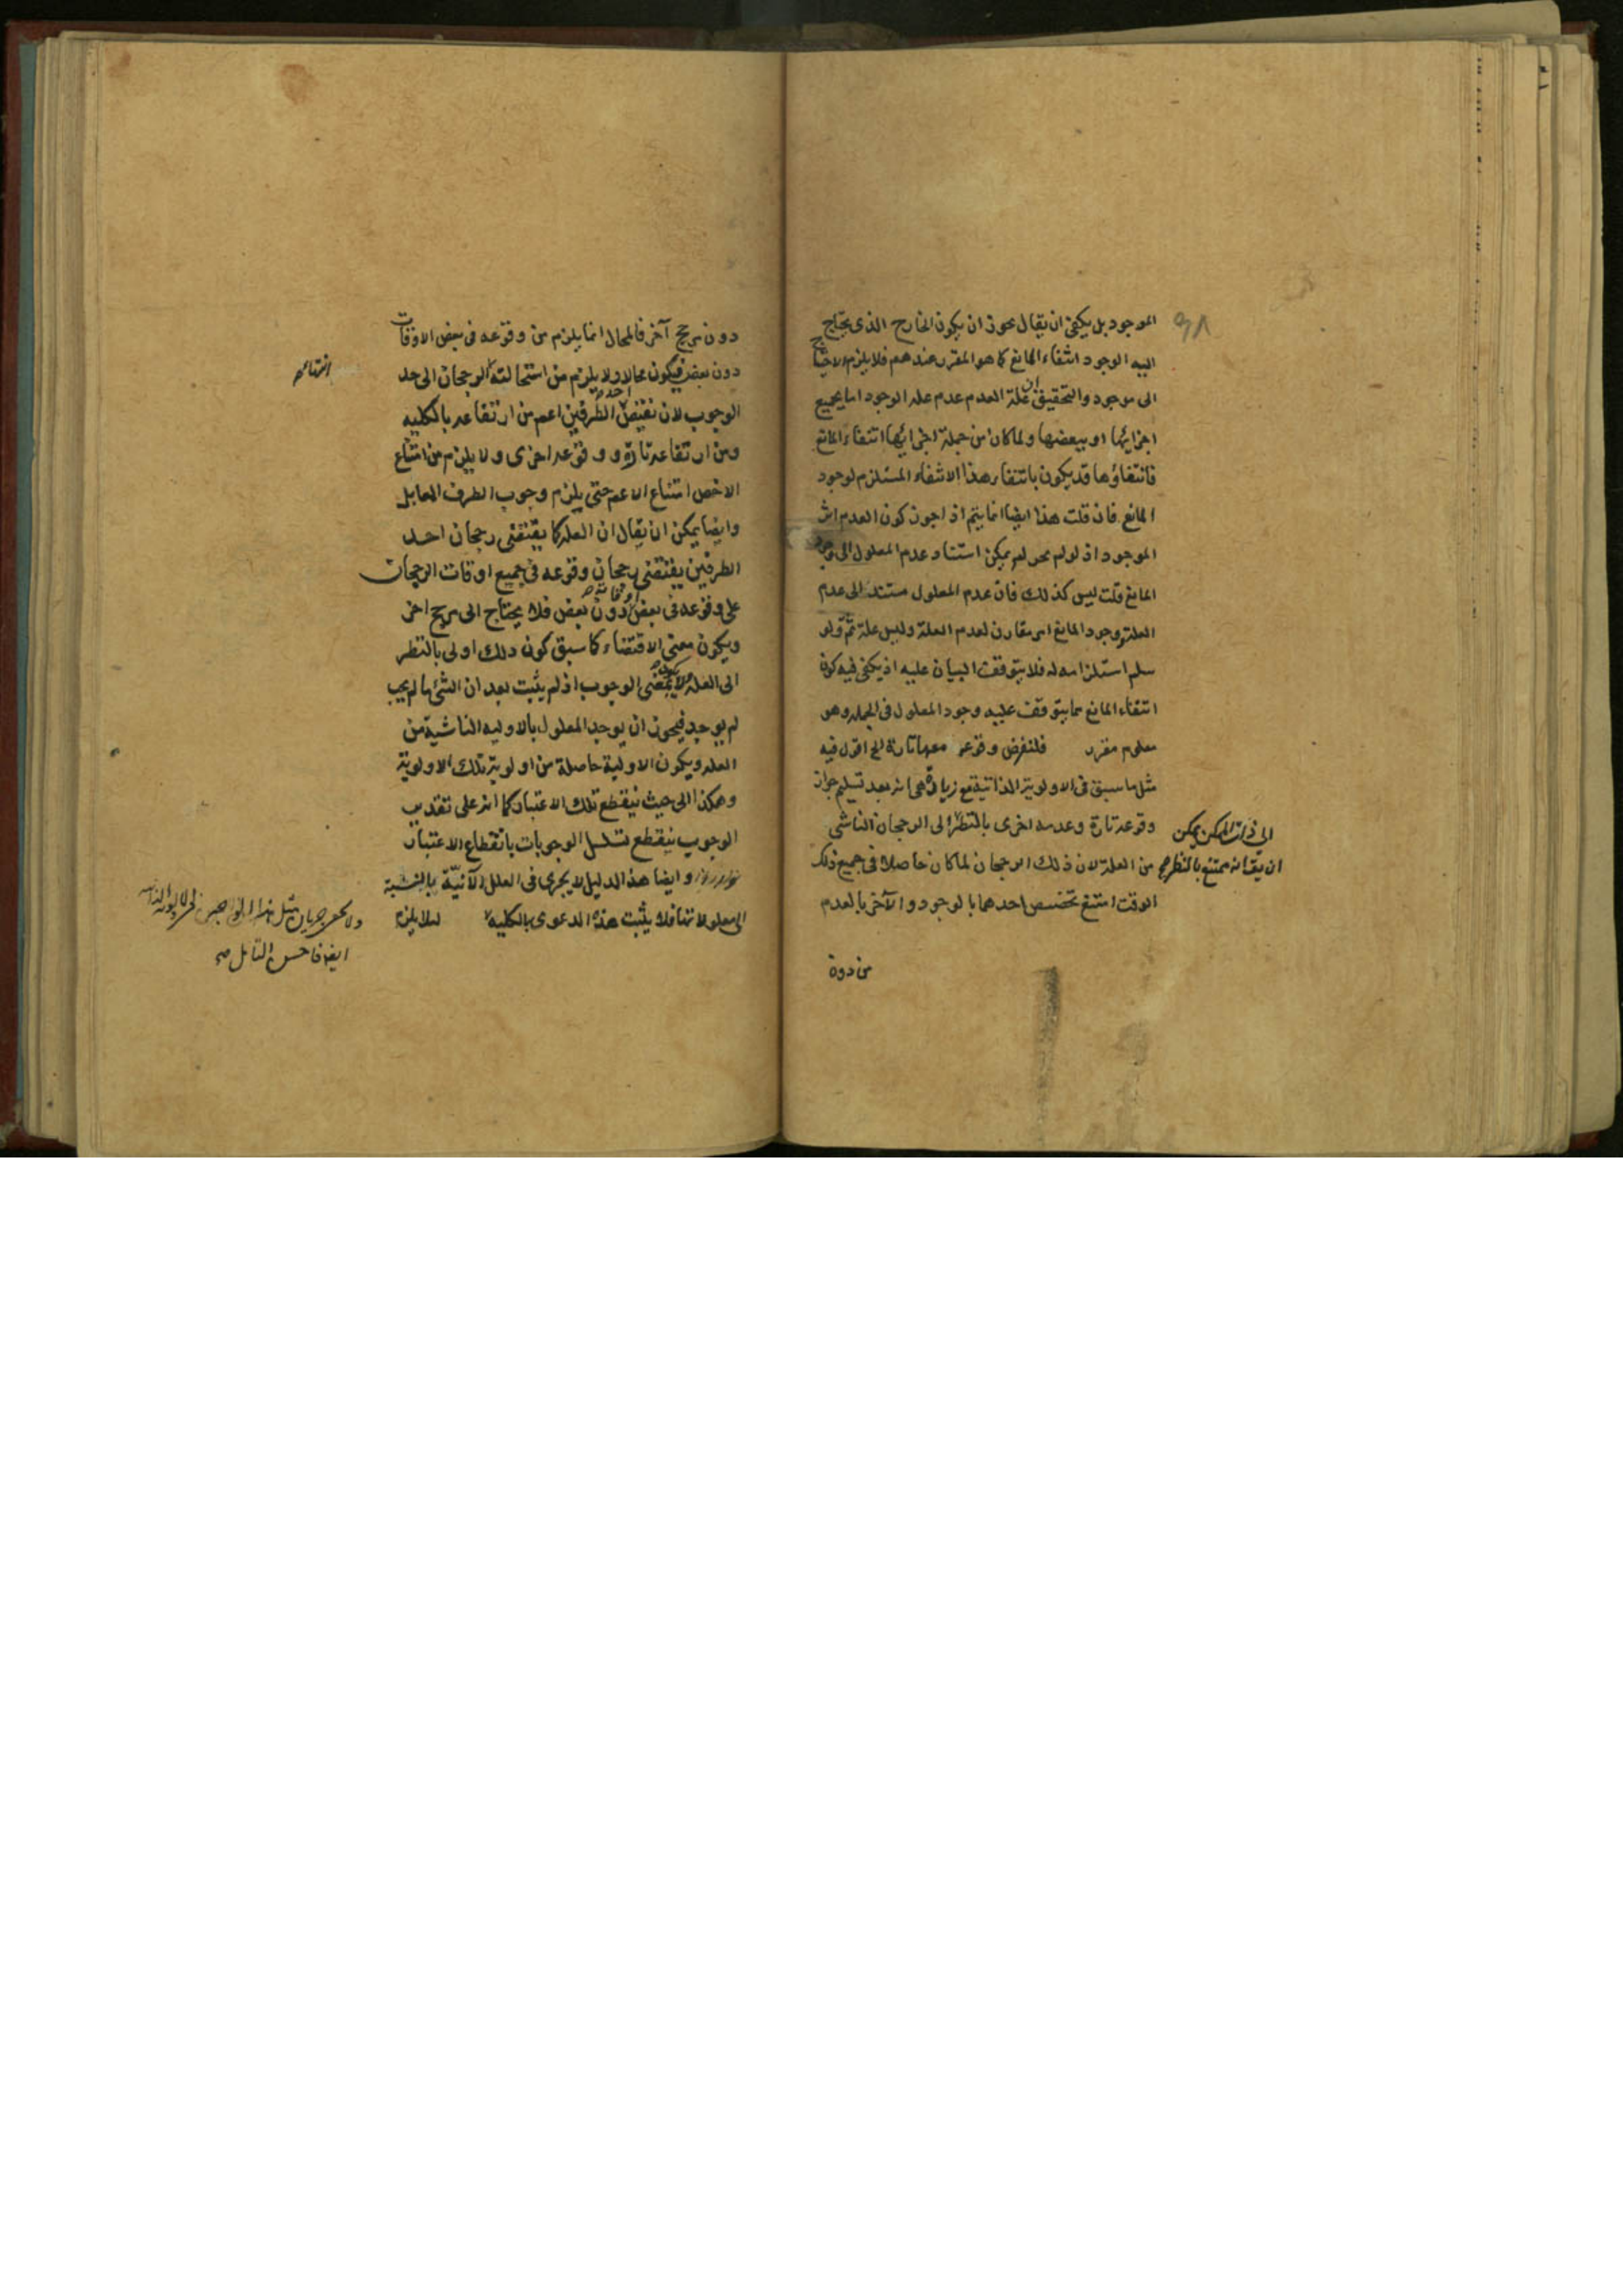 الموجود بل يكفى ان يقال يجوز ان يكون الخارج الذى يحتاج
اليه الوجود انتفاء المانع كما هو المقرر عندهم فلا يلزم الاحتياج
الى موجود والتحقيق ان علة العدم عدم علة الوجود اما بجميع
اجزائها او ببعضها ولما كان من جملة اجزائها انتفاء المانع
فانتفاؤها قد يكون بانتفاء هذا الانتفاء المستلزم لوجود
المانع فان قلت هذا ايضا انما يتم اذا جوز كون العدم اثر
الموجود اذ لو لم يجز لم يمكن استناد عدم المعلول الى وجود
المانع قلت ليس كذلك فان عدم المعلول مستند الى عدم
العلة ووجود المانع امر مقارن لعدم العلة وليس علة ثم ولو
سلم استلزامه له فلا يتوقف البيان عليه اذ يكفى فيه كون
انتفاء المانع مما يتوقف عليه وجود المعلول فى الجملة وهو
معلوم مقرر فلنفرض وقوعه معها تارة الخ اقول فيه
مثل ما سبق فى الاولوية الذاتية مع زيادة هى انه بعد تسليم جواز
وقوعه تارة وعدمه اخرى بالنظر الى الرجحان الناشى
من العلة لان ذلك الرجحان لما كان حاصلا فى جميع ذلك
الوقت امتنع تخصيص احدهما بالوجود والآخر بالعدم
الى ذات الممكن يمكن
ان يقال انه يمتنع بالنظر
من دون
دون مرجح آخر فالمحال انما يلزم من وقوعه فى بعض الاوقات
دون بعض فيكون محالا ولا يلزم من استحالته الرجحان الى حد
الوجوب لان نقيض احد الطرفين اعم من ارتفاعه بالكليه
ومن ارتفاعه تارة ووقوعه اخرى ولا يلزم من امتناع
الاخص امتناع الاعم حتى يلزم وجوب الطرف المقابل
وايضا يمكن ان يقال ان العلة كما يقتضى رجحان احد
الطرفين يقتضى رجحان وقوعه فى جميع اوقات الرجحان
على وقوعه فى بعض دون بعض فلا يحتاج الى مرجح اخر
ويكون معنى الاقتضاء كما سبق كون ذلك اولى بالنظر
الى العلة لا بمعنى الوجوب اذ لم يثبت بعد ان الشئ ما لم يجب
لم يوجد فيجوز ان يوجد المعلول بالاوليه الناشية من
العلة ويكون الاولية حاصلة من اولوية تلك الاولوية
وهكذا الى حيث ينقطع تلك الاعتبار كما انه على تقدير
الوجوب ينقطع تسلسل الوجوبات بانقطاع الاعتبار
وايضا هذا الدليل لا يجرى فى العلل الآنيّة بالنسبة
الى معلولاتها فلا يثبت هذه الدعوى بالكليه لئلا يلزم
ايضا فاحسن التأمل